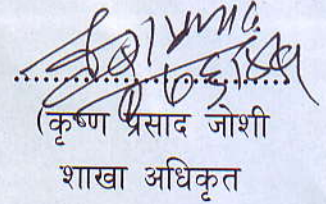 (कृष्ण प्रसाद जोशी
शाखा अधिकृत